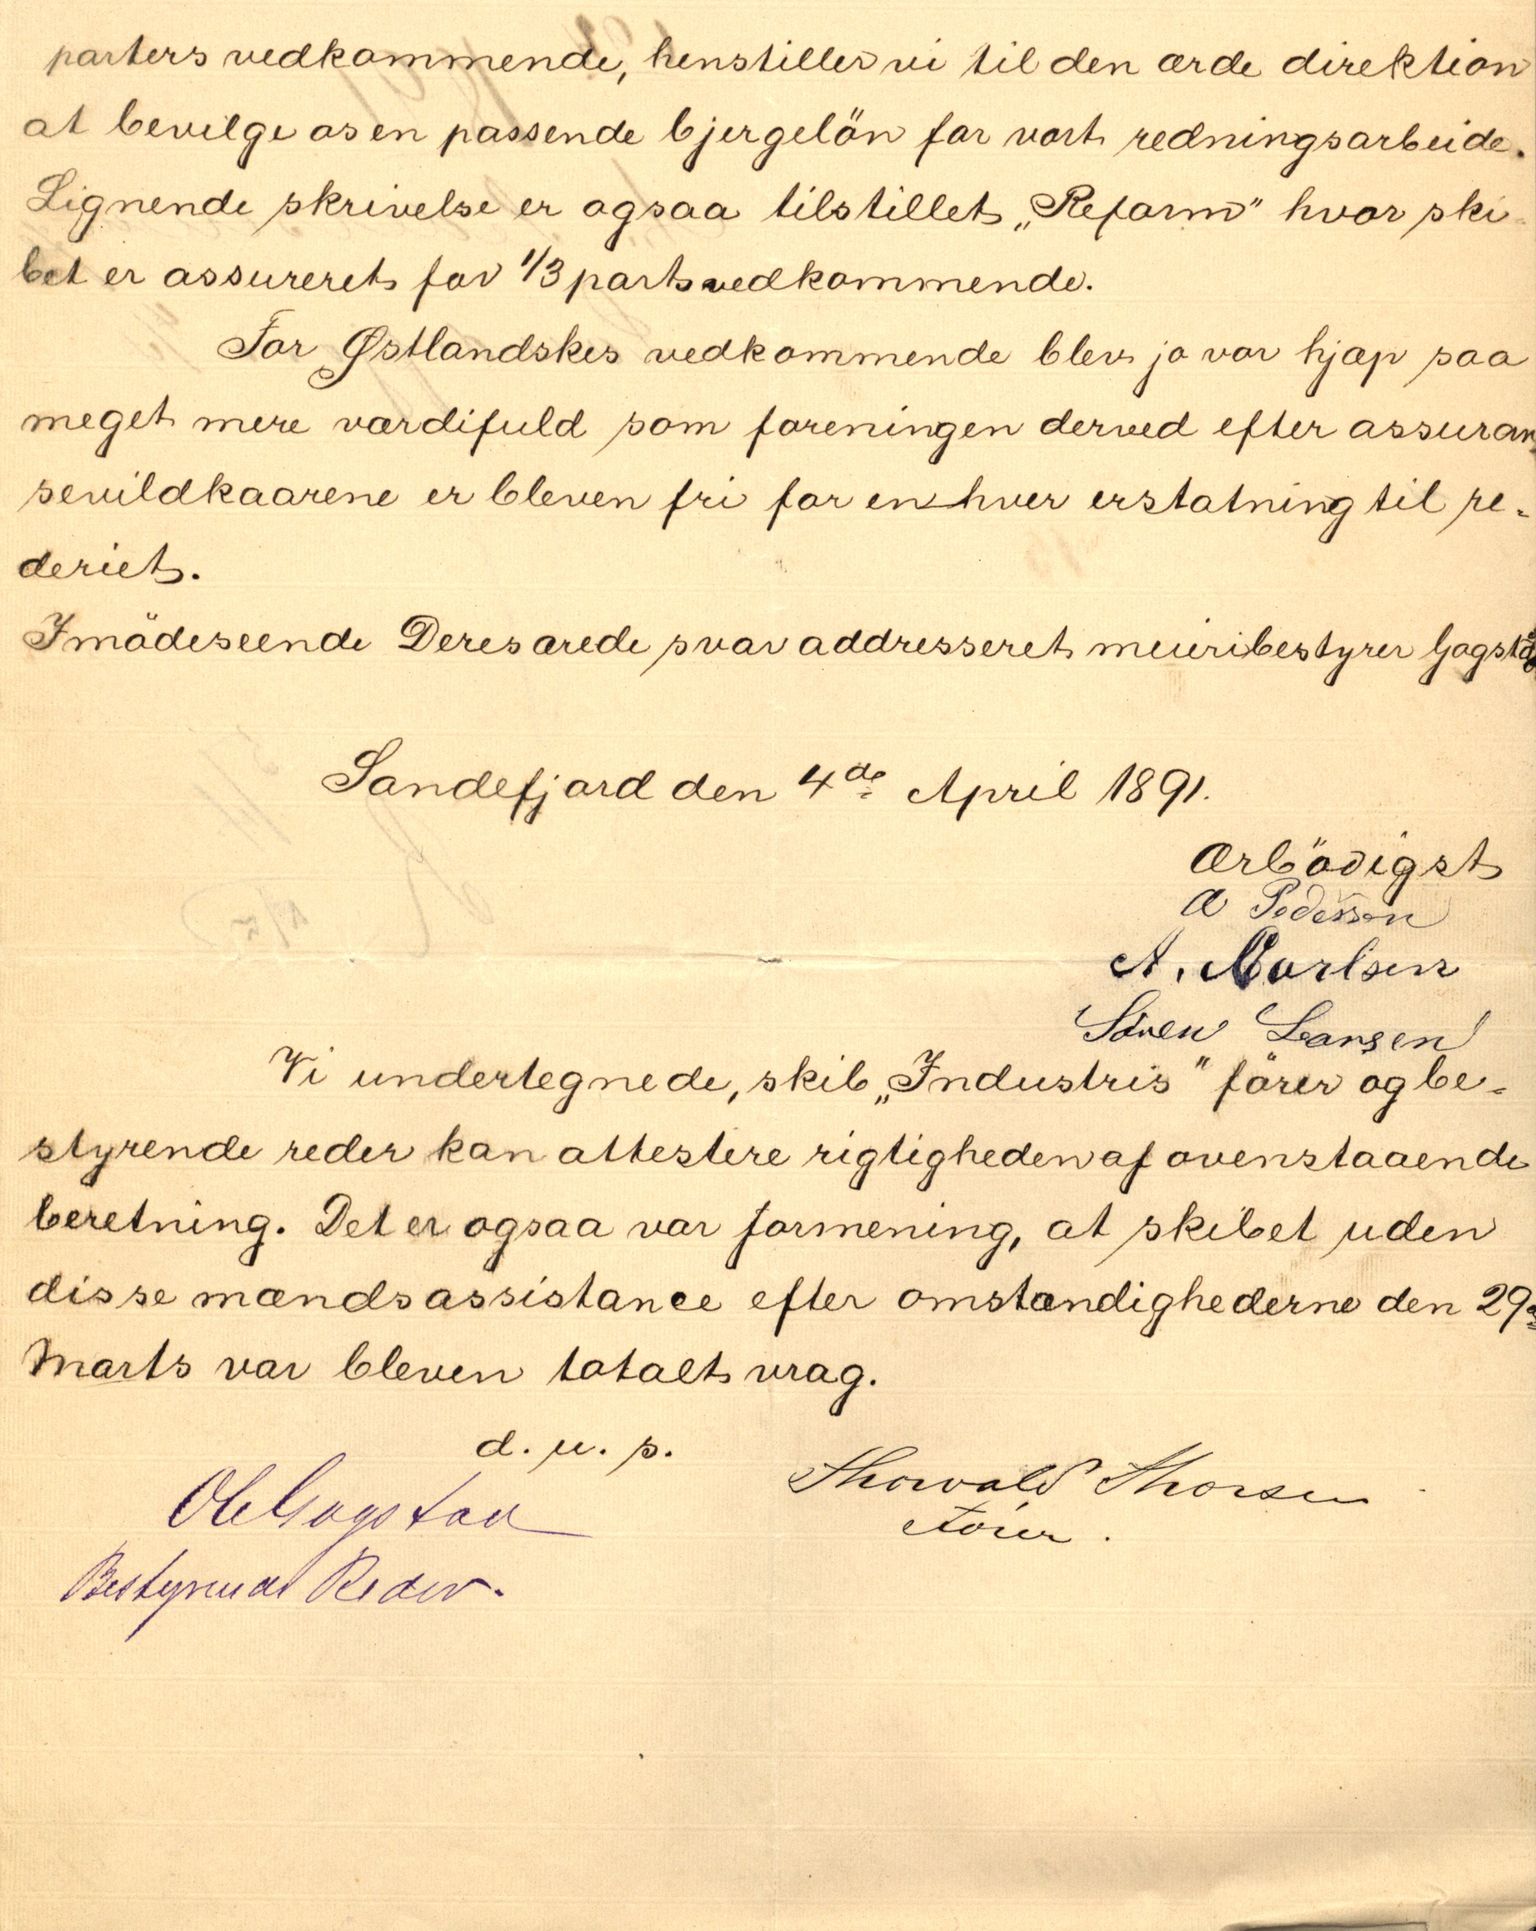 parters vedkommende, henstiller vi til den ærde direktion
at bevilge os en passende bjergelön for vort redningsarbeide.
Lignende skrivelse er ogsaa tilstillet „Reform" hvor ski
bet er assureret for 1/3 parts vedkommende.
For Østlandskes vedkommende blev jo vor hjæp saa
meget mere værdifuld som foreningen derved efter assuran
sevildkaarene er bleven fri for enhver erstatning til re-
deriet.
Imödeseende Deres ærede svar addresseret meieribestyrer Gogstad
Sandefjord den 4de April 1891.
Ærbödigst
A Pedersen
A. Carlsen
Sören Larsen
Vi undertegnede, skib „Industris" förer og be-
styrende reder kan attestere rigtigheden af ovenstaaende
beretning. Det er ogsaa vor formening, at skibet uden
disse mænds assistance efter omstændighederne den 29de
Marts var bleven totalt vrag.
d. u. s.
Ole Gogstad
Thorvald Thorsen
Förer.
Bestyrende Reder.